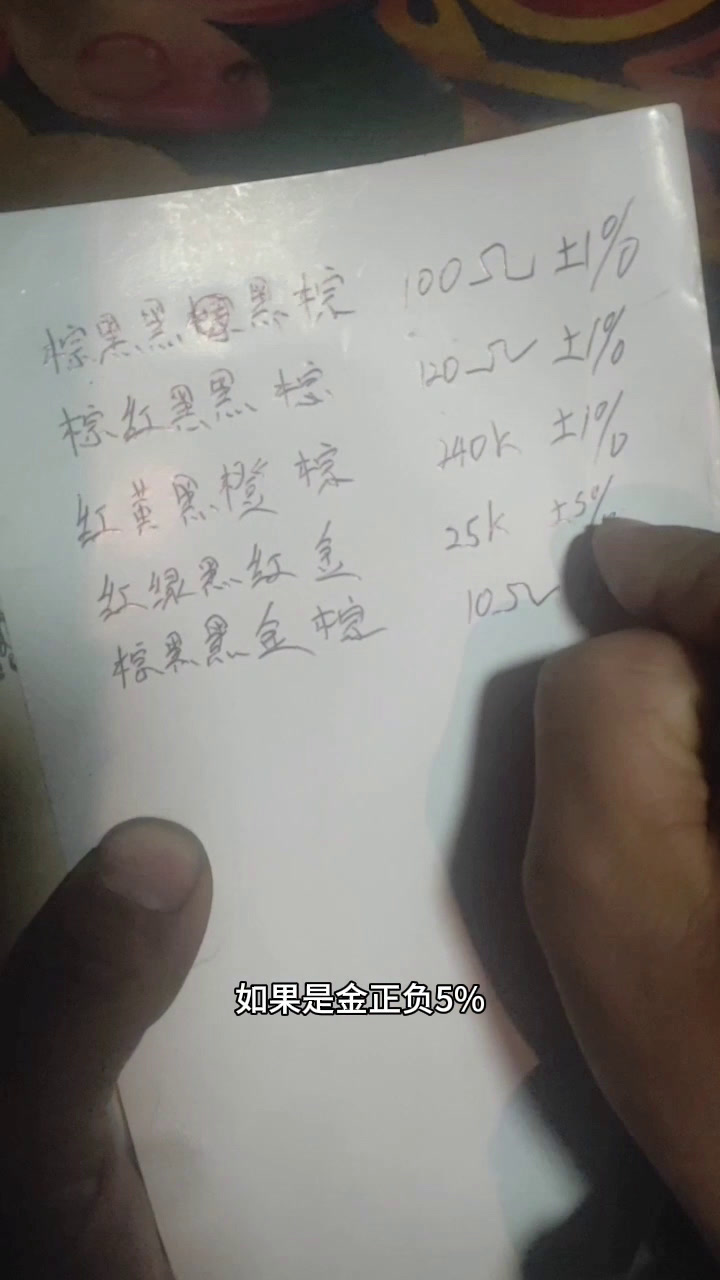 棕黑黑黑棕 100Ω ±1%
棕红黑黑棕 120Ω ±1%
红黄黑橙棕 240k ±1%
红绿黑红金 25k ±5%
棕黑黑金棕 10Ω
如果是金正负5%